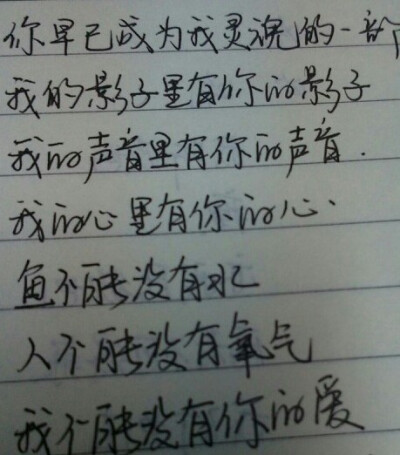 你早已成为我灵魂的一部
我的影子里有你的影子
我的声音里有你的声音.
我的心里有你的心.
鱼不能没有水
人不能没有氧气
我不能没有你的爱